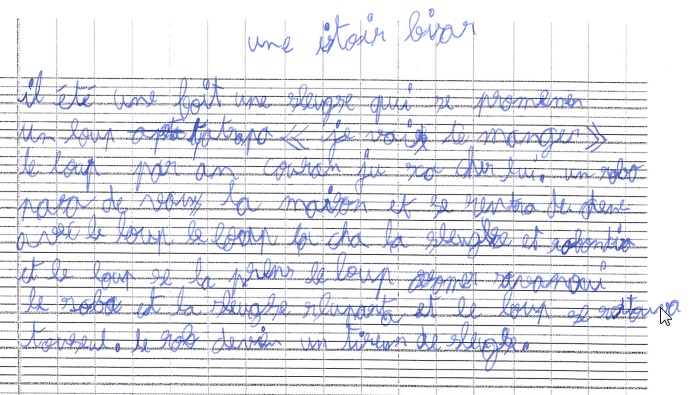 une istoir bizar
il été une foit une sleugse qui se promenen
un loup atrapa « je vais te manger »
le loup par an couran ju sa cher lui. un robo
pasa de vans la maison et se rentra de dene
avec le loup le loup la cha la sleugse et
et le loup se la prens le loup evanoui
le robo et la sleugse et le loup se retouva
touseul. le rob devin un tireur de sleugse.